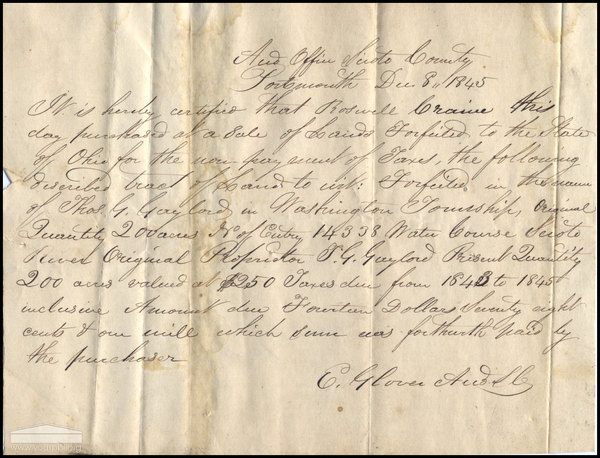 Aud Office Scioto County
Portsmouth Dec. 8,, 1845
It is hereby certified that Roswell Craine this
day purchased at a Sale of Lands Forfeited to the State
of Ohio for the non-payment of Taxes, the following
discribed tract of Land to wit: Forfeited in the name
of Thos. G. Gaylord, in Washington Township, Original
Quantity 200 acres No of Entry 14338 Water Course Scioto
River Original Proprietor T. G. Gaylord Present Quantity
200 acres valued at $250 Taxes due from 1843 to 1845
inclusive Amount due Fourteen Dollars Seventy eight
cents & one mill which sum was forthwith paid by
the purchaser
C. Glover Aud S. C.